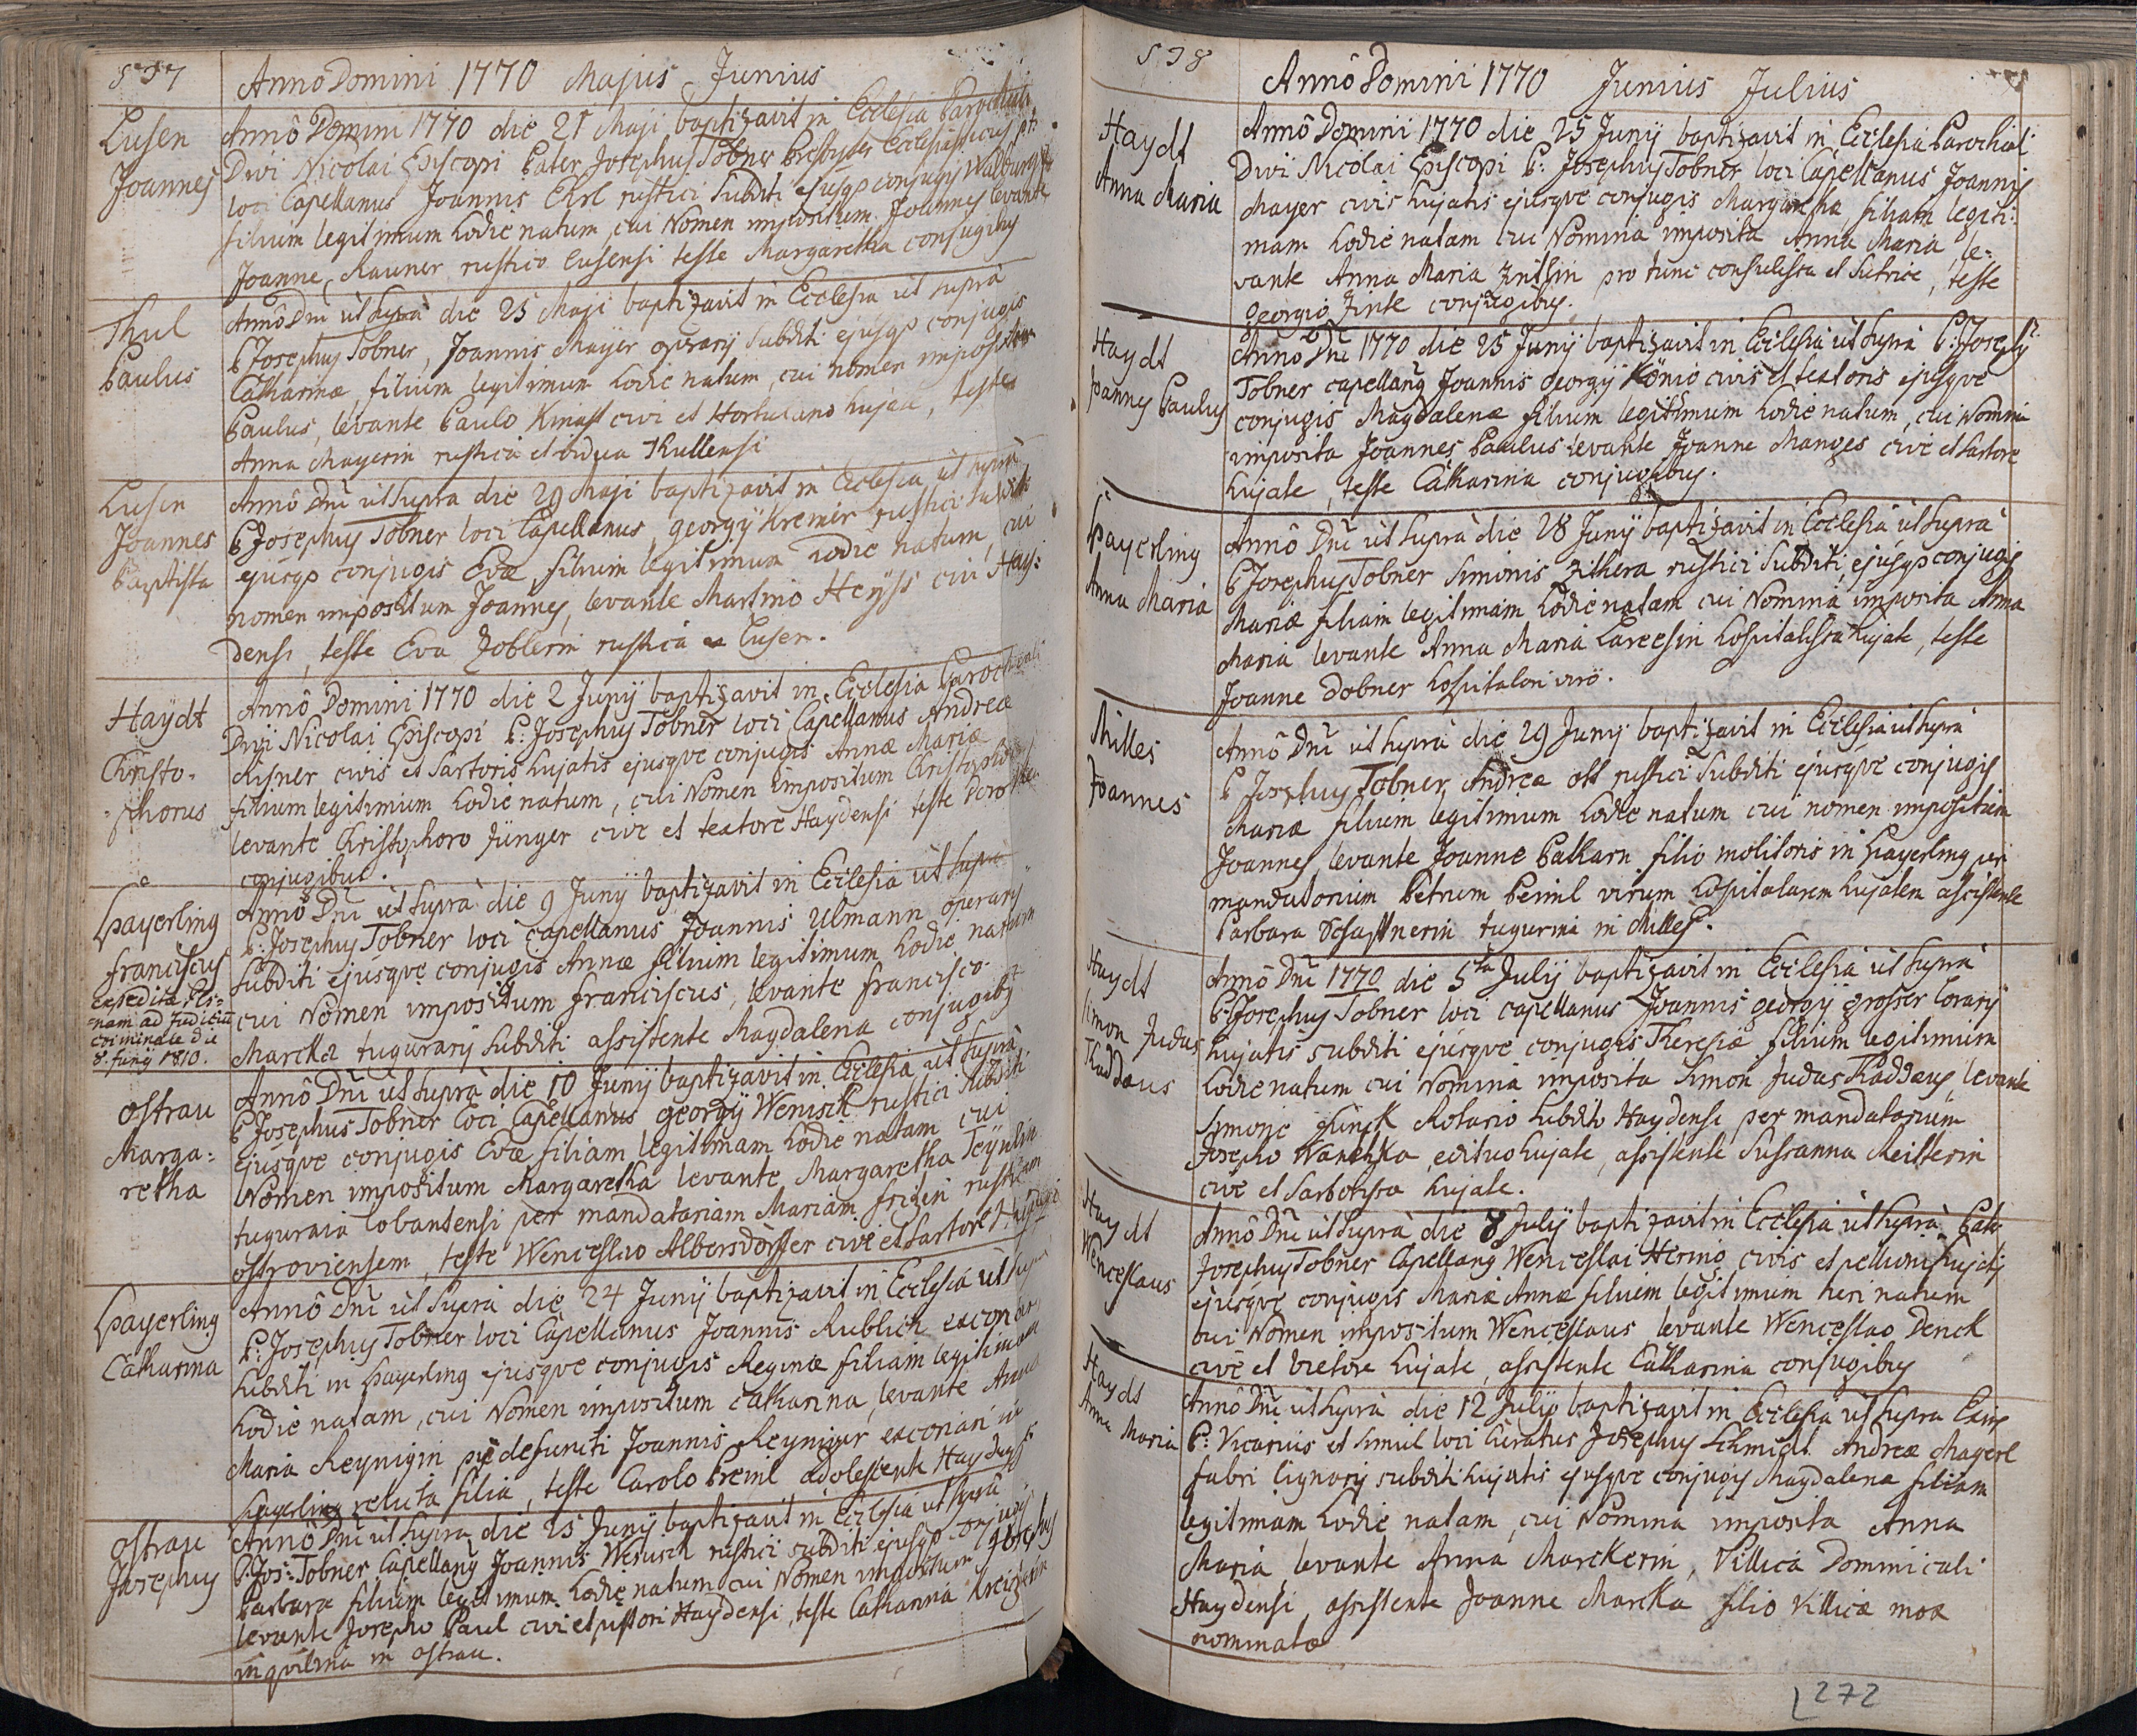 537
Anno Domini 1770 Majus Junius
Lusen
Joannes
Annô Domini 1770 die 21 Maji baptizavit in Ecclesia Parochiali
Divi Nicolai Episcopi Pater Josephus Tobner Presbyter Ecclesiasticus pt:
loci Capellanus Joannis Ehrl rustici subditi ejusqs conjugis Walburgæ
filium legitimum hodie natum, cui Nomen impositum Joannes levante
Joanne Rauner rustico Lusensi teste Margaretha conjugibus
Thul
Paulus
Annô Dni ut supra die 25 Maji baptizavit in Ecclesia ut supra
P Josephus Tobner, Joannis Mayer operarij subditi ejusqs conjugis
Catharinæ, filium legitimum hodie natum, cui nomen impositum
Paulus, levante Paulo Knast civi et Hortulano hujate, teste
Anna Mayerin rustica et vidua Thullensi
Lusen
Joannes
Baptista
Annô Dni ut supra die 29 Maji baptizavit in Ecclesia ut supra
P Josephus Tobner loci Capellanus, georgij Kremer rustici subditi
ejusqs conjugis Evæ filium legitimum hodie natum, cui
nomen impositum Joannes, levante Martino Heyst civi Hay:
densi, teste Eva Zoblerin rustica ex Lusen.
Haydt
Christo-
-phorus
Annô Domini 1770 die 2 Junij baptizavit in Ecclesia Parochiali
Divi Nicolai Episcopi P: Josephus Tobner loci Capellanus Andreæ
Risner civis et Sartoris hujatis ejusqve conjugis Annæ Mariæ
filium legitimum hodie natum, cui Nomen impositum Christophorus
levante Christophoro Jünger cive et textore Haydensi teste Dorothea
conjugibus.
Hayerling
franciscus
expedita Pls=
=nam ad Judiciũ
criminale die
8. Junij 1810.
Annô Dni ut supra die 9 Junij baptizavit in Ecclesia ut supra
P: Josephus Tobner loci Capellanus Joannis Ulmann operarij
Subditi ejusqve conjugis Annæ filium legitimum hodie natum
cui Nomen impositum franciscus, levante francisco
Marcka tugurarij subditi assistente Magdalena conjugibus
Ostrau
Marga:
retha
Annô Dni ut supra die 10 Junij baptizavit in Ecclesia ut supra
P Josephus Tobner Loci Capellanus georgij Wenisch rustici subditi
ejusqve conjugis Evæ filiam legitimam hodie natam cui
Nomen impositum Margaretha levante, Margaretha
tuguraia Lobantensi per mandatariam Mariam fritzin rusticam
ostroviensem, teste Wenceslao Albersdörffer cive et Sartore Haidensi
Hayerling
Catharina
Annô Dni ut supra die 24 Junij baptizavit in Ecclesia ut supra
P: Josephus Tobner loci Capellanus Joannis Rublich
subditi in Hayerling ejusqve conjugis Reginæ filiam legitimam
hodie natam, cui Nomen impositum Catharina, levante Anna
Maria Reynigin pie defuncti Joannis Reyniger exconari in
Hayerling relicta filia, teste Carolo Preinl adolescente Haydensi
Ostrau
Josephus
Annô Dni ut supra die 25 Junij baptizavit in Ecclesia ut supra
P. Jos: Tobner Capellanus Joannis Wenisch rustici subditi ejusqs conjugis
Barbara filium legitimum hodie natum cui Nomen impositum Josephus
levante Josepho Paul civi et pistori Haydensi, teste Catharina
inqvilina in ostrau.
538
Annô Domini 1770 Junius Julius
Haydt
Anna Maria
Annô Domini 1770 die 25 Junij baptizavit in Ecclesia Parochiali
Divi Nicolai Episcopi P: Josephus Tobner loci Capellanus Joannis
Mayer civis hujatis ejusqve conjugis Margaretha filiam legiti:
mam hodie natam cui Nomina imposita Anna Maria, le-
vante Anna Maria Zintlin pro tunc consulessa et Sutrice, teste
Georgio Zintl conjugibus.
Haydt
Joannes Paulus
Annô Dni 1770 die 25 Junij baptizavit in Ecclesia ut supra P: Josephus
Tobner capellanus Joannis georgij König civis et textoris ejusqve
conjugis Magdalenæ filium legitimum hodie natum, cui Nomina
imposita Joannes Paulus levante Joanne Manges cive et Sartore
hujate, teste Catharina conjugibus.
Hayerling
Anna Maria
Annô Dni ut supra die 28 Junij baptizavit in Ecclesia ut supra
P Josephus Tobner Simonis Zithera rustici subditi, ejusqs conjugis
Mariæ filiam legitimam hodie natam cui Nomina imposita Anna
Maria levante Anna Maria hospitalissa hujate, teste
Joanne Dobner hospitalari viro.
Milles
Joannes
Annô Dni ut supra die 29 Junij baptizavit in Ecclesia ut supra
P Josephus Tobner, Andreæ Ott rustici subditi ejusqve conjugis
Mariæ filium legitimum hodie natum cui nomen impositum
Joannes, levante Joanne Balkarn filio molitoris in Hayerling per
mandatorium Petrum Beinl virum hospitalarem hujatem assistente
Barbara tugurina in Milles.
Haydt
Simon Judas
Thaddæus
Annô Dni 1770 die 5ta Julij baptizavit in Ecclesia ut supra
P. Josephus Tobner loci capellanus Joannis georgij grosser Lorarij
hujatis subditi ejusqve conjugis Theresiæ filium legitimum
hodie natum cui Nomina imposita Simon Judas Thaddæus, levante
Simone Rotario subdito Haydensi per mandatarium
Josepho Wanchka, edituo hujate, assistente Susanna Reitterin
cive et Sartorissa hujate.
Haydt
Wenceslaus
Annô Dni ut supra die 8 Julij baptizavit in Ecclesia ut supra Pater
Josephus Tobner Capellanus Wenceslai Hernig civis et pellionis hujatis
ejusqve conjugis Mariæ Annæ filium legitimum heri natum
cui Nomen impositum Wenceslaus, levante Wenceslao Denck
cive et vietore hujate, assistente Catharina conjugibus
Haydt
Anna Maria
Annô Dni ut supra die 12 Julij baptizavit in Ecclesia ut supra
P: Vicarius et simul loci Curatus Josephus Schmidt Andreæ Mayerl
fabri lignarij subditi hujatis ejusqve conjugis Magdalenæ filiam
legitimam hodie natam, cui Nomina imposita Anna
Maria, levante Anna Marckerin, Villica Dominicali
Haydensi, assistente Joanne Marcka filio Villicæ mox
nominatæ
272